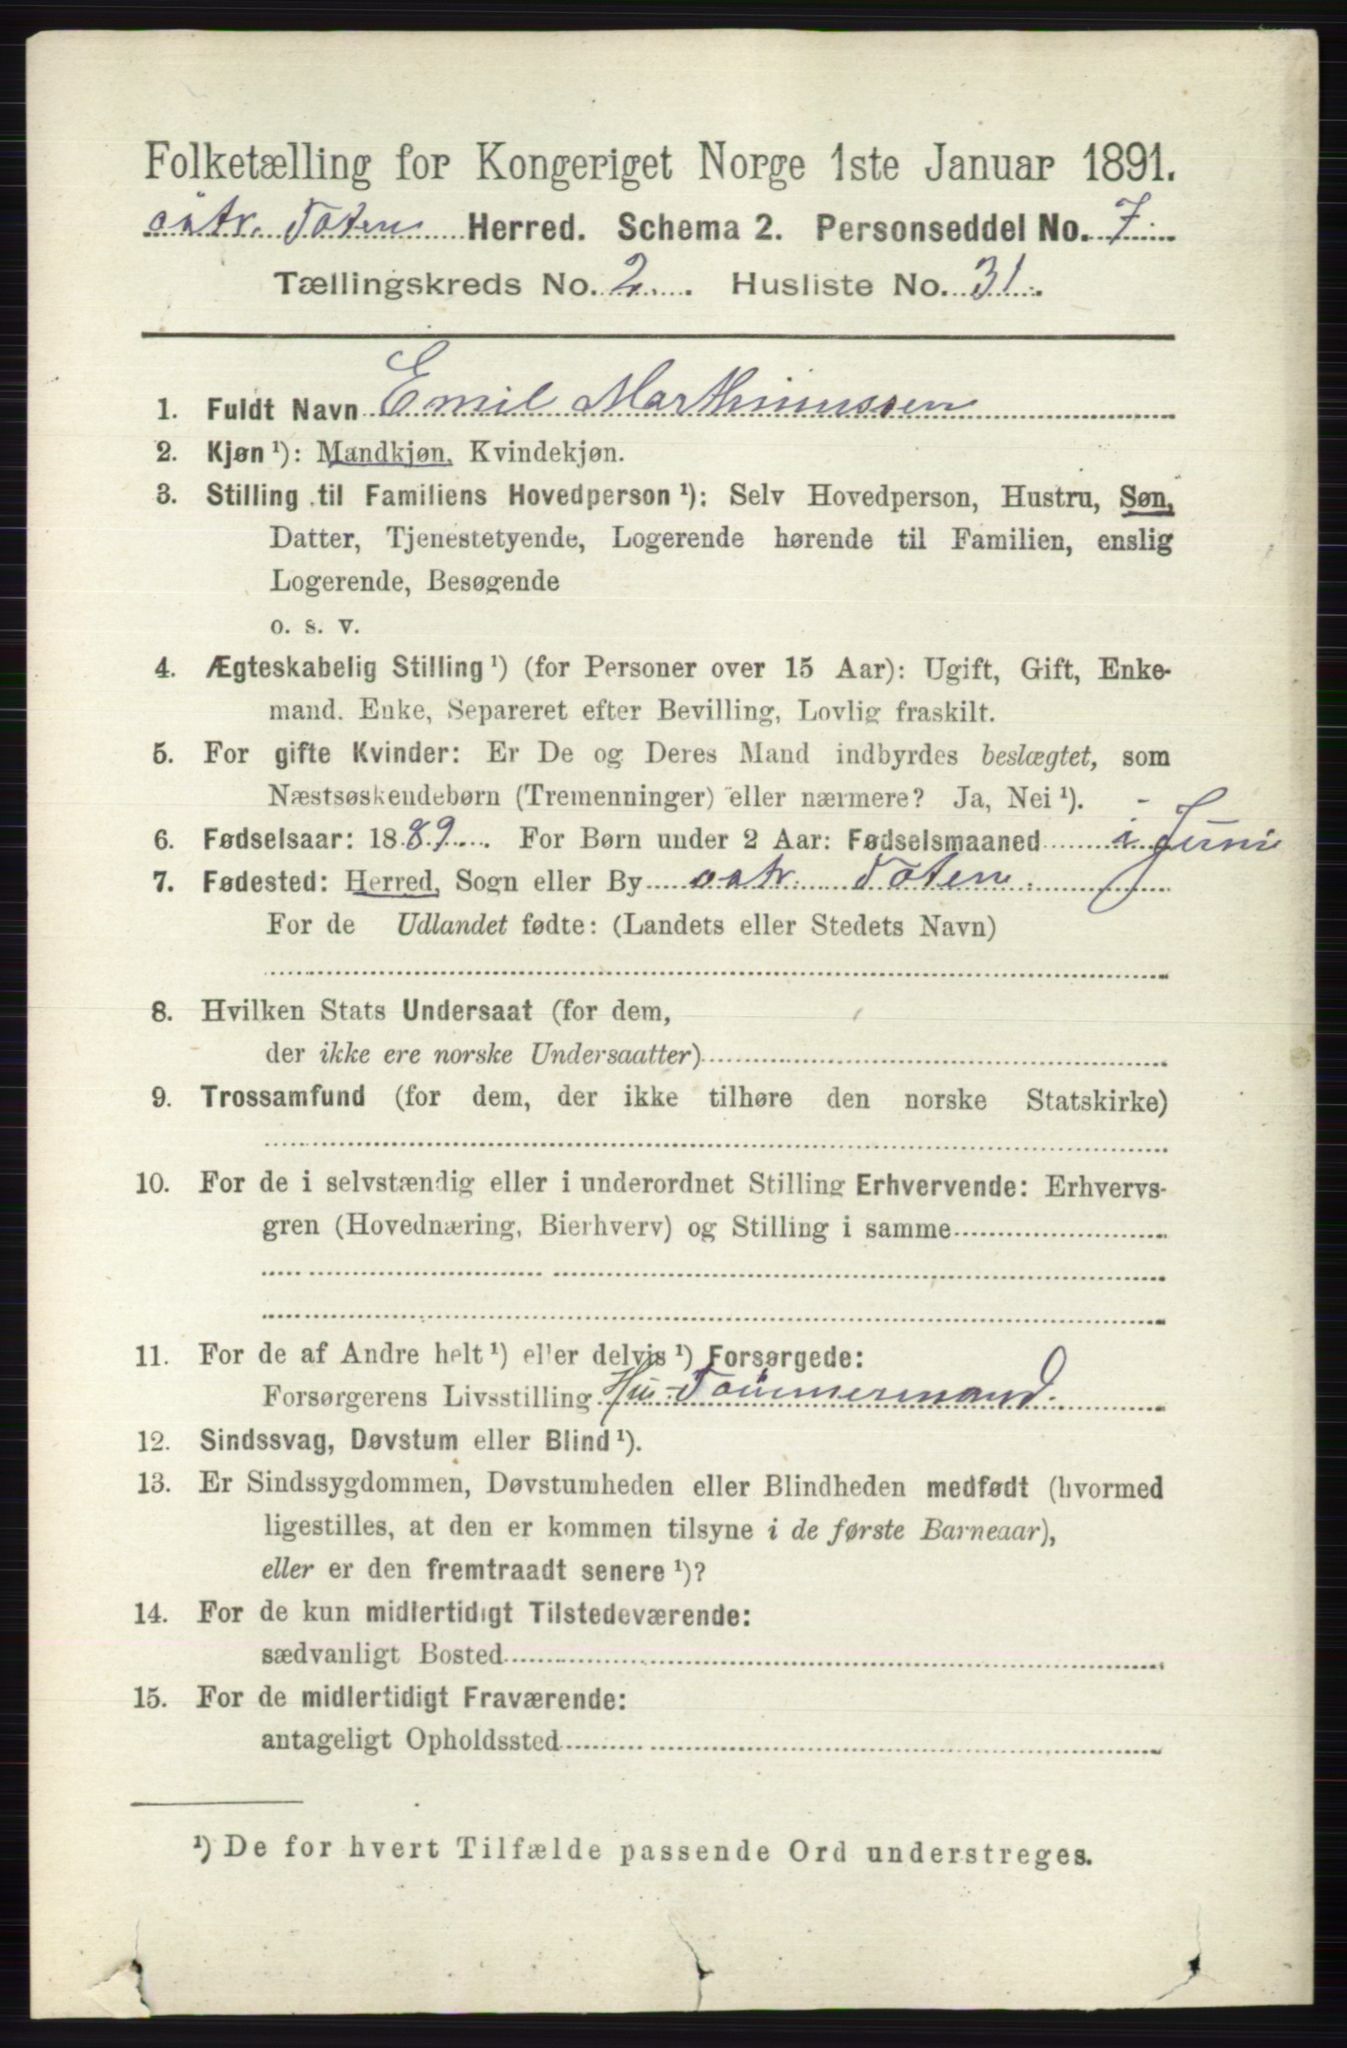 Folketælling for Kongeriget Norge 1ste Januar 1891.
östr. Toten Herred. Schema 2. Personseddel No. 7
Tællingskreds No. 2. Husliste No. 31.
1. Fuldt Navn Emil Marthinussen
2. Kjøn¹): Mandkjøn, Kvindekjøn.
3. Stilling til Familiens Hovedperson¹): Selv Hovedperson, Hustru, Søn,
Datter, Tjenestetyende, Logerende hørende til Familien, enslig
Logerende, Besøgende
o. s. v.
4. Ægteskabelig Stilling¹) (for Personer over 15 Aar): Ugift, Gift, Enke-
mand. Enke, Separeret efter Bevilling, Lovlig fraskilt.
5. For gifte Kvinder: Er De og Deres Mand indbyrdes beslægtet, som
Næstsøskendebørn (Tremenninger) eller nærmere? Ja, Nei¹).
6. Fødselsaar: 1889. For Børn under 2 Aar: Fødselsmaaned i Juni
7. Fødested: Herred, Sogn eller By östr. Toten
For de Udlandet fødte: (Landets eller Stedets Navn)
8. Hvilken Stats Undersaat (for dem,
der ikke ere norske Undersaatter)
9. Trossamfund (for dem, der ikke tilhøre den norske Statskirke)
10. For de i selvstændig eller i underordnet Stilling Erhvervende: Erhvervs-
gren (Hovednæring, Bierhverv) og Stilling i samme
11. For de af Andre helt¹) eller delvis¹) Forsørgede:
Forsørgerens Livsstilling Hu-Tömmermand.
12. Sindssvag, Døvstum eller Blind¹).
13. Er Sindssygdommen, Døvstumheden eller Blindheden medfødt (hvormed
ligestilles, at den er kommen tilsyne i de første Barneaar),
eller er den fremtraadt senere¹)?
14. For de kun midlertidigt Tilstedeværende:
sædvanligt Bosted
15. For de midlertidigt Fraværende:
antageligt Opholdssted
¹) De for hvert Tilfælde passende Ord understreges.